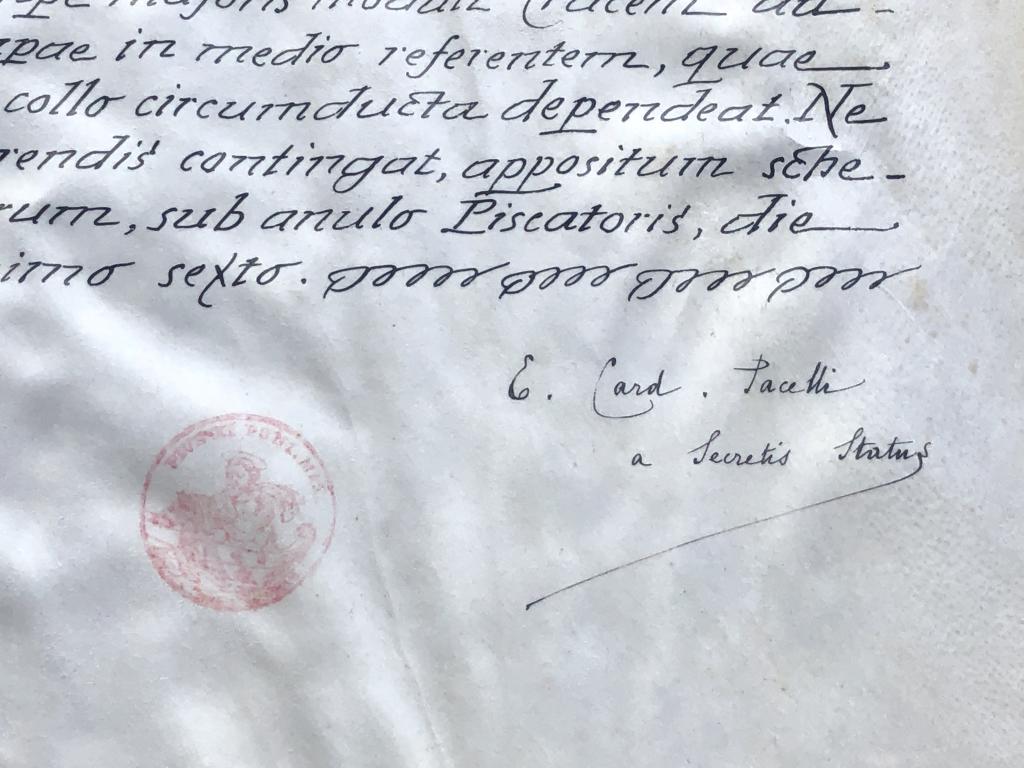 majoris moduli Crucem au-
in medio referentem, quae
collo circumducta dependeat. Ne
contingat, appositum sche-
sub anulo Piscatoris, die
sexto.
E. Card. Pacelli
a Secretis Status
PIUS XI PONT. MAX